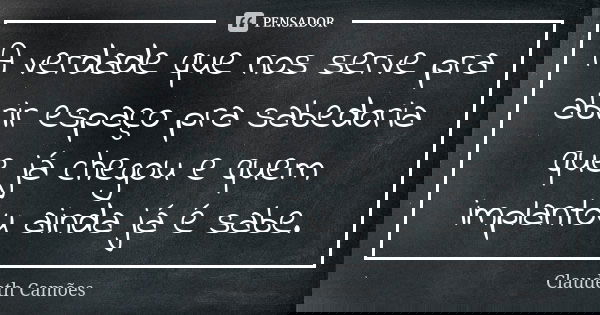 PENSADOR
A verdade que nos serve pra
abrir espaço pra sabedoria
que já chegou e quem
implantou ainda já é sabe.
Claudeth Camões